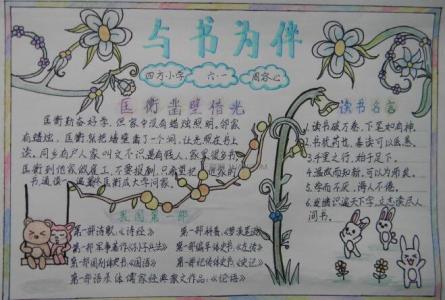 与书为伴
四方小学 六·一 周容心
匡衡凿壁借光
匡衡勤奋好学，但家中没有蜡烛照明。邻家
有蜡烛，匡衡就把墙壁凿了一个洞，让光照在书上
读。同乡有户人家叫文不识，是有钱人，家里很多书。
匡衡到他家做雇工，不要报酬，只希望把
书，通读一遍。匡衡成大学问家。
读书名言
1.读书破万卷，下笔如有神。
2.书犹药也，善读可以医愚。
3.千里之行，始于足下。
4.温故而知新，可以为师矣。
5.学而不厌，诲人不倦。
6.发愤识遍天下字，立志读尽人
间书。
我国第一部
第一部诗歌《诗经》
第一部军事著作《孙子兵法》
第一部国别体史书《国语》
第一部语录体儒家经典散文作品：《论语》
第一部词典：《尔雅》
第一部编年体史书《左传》
第一部纪传体史书《史记》